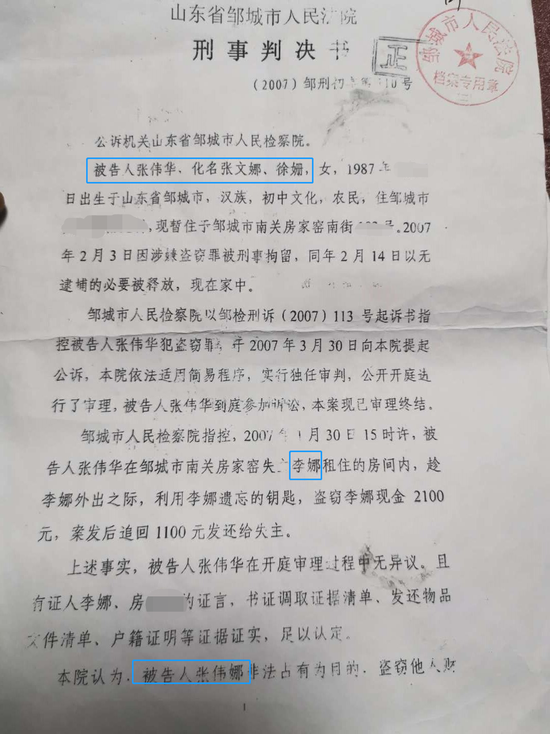 山东省邹城市人民法院
刑事判决书
正
邹城市人民法院
档案专用章
(2007)邹刑初 10号
公诉机关山东省邹城市人民检察院。
被告人张伟华、化名张文娜、徐姗,女,1987年
日出生于山东省邹城市,汉族,初中文化,农民,住邹城市
,现暂住于邹城市南关房家窑南街 号。2007
年2月3日因涉嫌盗窃罪被刑事拘留,同年2月14日以无
逮捕的必要被释放,现在家中。
邹城市人民检察院以邹检刑诉(2007)113号起诉书指
控被告人张伟华犯盗窃罪 年2007年3月30日向本院提起
公诉,本院依法适用简易程序,实行独任审判,公开开庭进
行了审理,被告人张伟华到庭参加诉讼,本案现已审理终结。
邹城市人民检察院指控,2007年1月30日15时许,被
告人张伟华在邹城市南关房家窑失主李娜租住的房间内,趁
李娜外出之际,利用李娜遗忘的钥匙,盗窃李娜现金2100
元,案发后追回1100元发还给失主。
上述事实,被告人张伟华在开庭审理过程中无异议。且
有证人李娜、房 的证言,书证调取证据清单、发还物品
文件清单、户籍证明等证据证实,足以认定。
本院认为,被告人张伟娜非法占有为目的,盗窃他人财
1